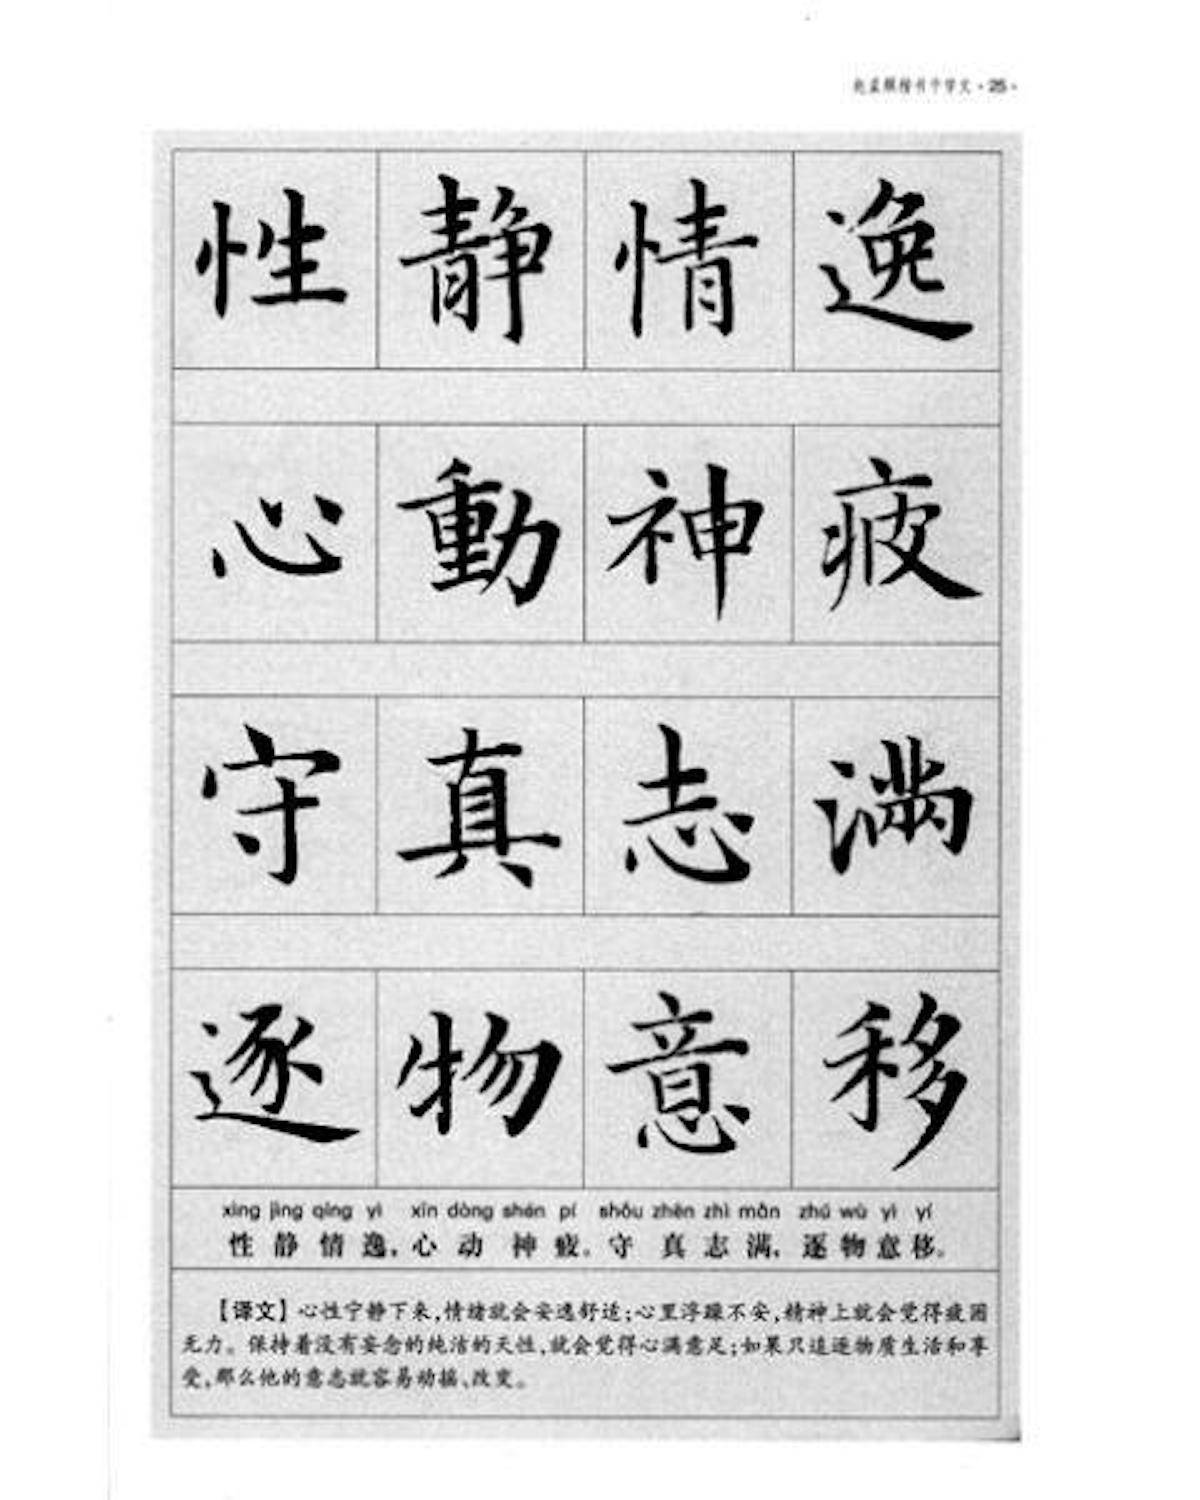 赵孟頫楷书千字文·25·
性静情逸
心動神疲
守真志满
逐物意移
xìng jìng qíng yì xīn dòng shén pí shǒu zhēn zhì mǎn zhú wù yì yí
性静情逸,心动神疲。守真志满,逐物意移。
【译文】心性宁静下来,情绪就会安逸舒适;心里浮躁不安,精神上就会觉得疲困
无力。保持着没有妄念的纯洁的天性,就会觉得心满意足;如果只追逐物质生活和享
受,那么他的意志就容易动摇、改变。